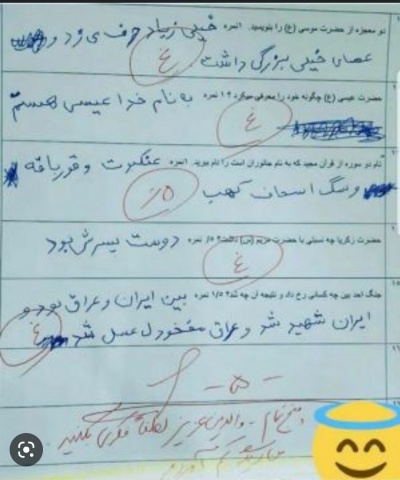 دو معجزه از حضرت موسی (ع) را بنویسید. ۱نمره خیلی زیاد حرف می زد و
عصای خیلی بزرگی داشت غ
حضرت عیسی (ع) چگونه خود را معرفی میکرد؟ ۱ نمره به نام خدا عیسی هستم
غ
نام دو سوره از قران مجید که به نام جانوران است را نام ببرید. ۱نمره عنکبوت و قورباقه
و سگ اسحاب کهب ۵٪
حضرت زکریا چه نسبتی با حضرت مریم (س) داشت؟ ۵/. نمره دوست پسرش بود
غ
جنگ احد بین چه کسانی رخ داد و نتیجه آن چه شد؟ ۱/۵ نمره بین ایران و عراق بود و
ایران شهید شد و عراق مفخودل عسل شد غ
- ۵ -
والدین عزیز لطفا فکری کنید